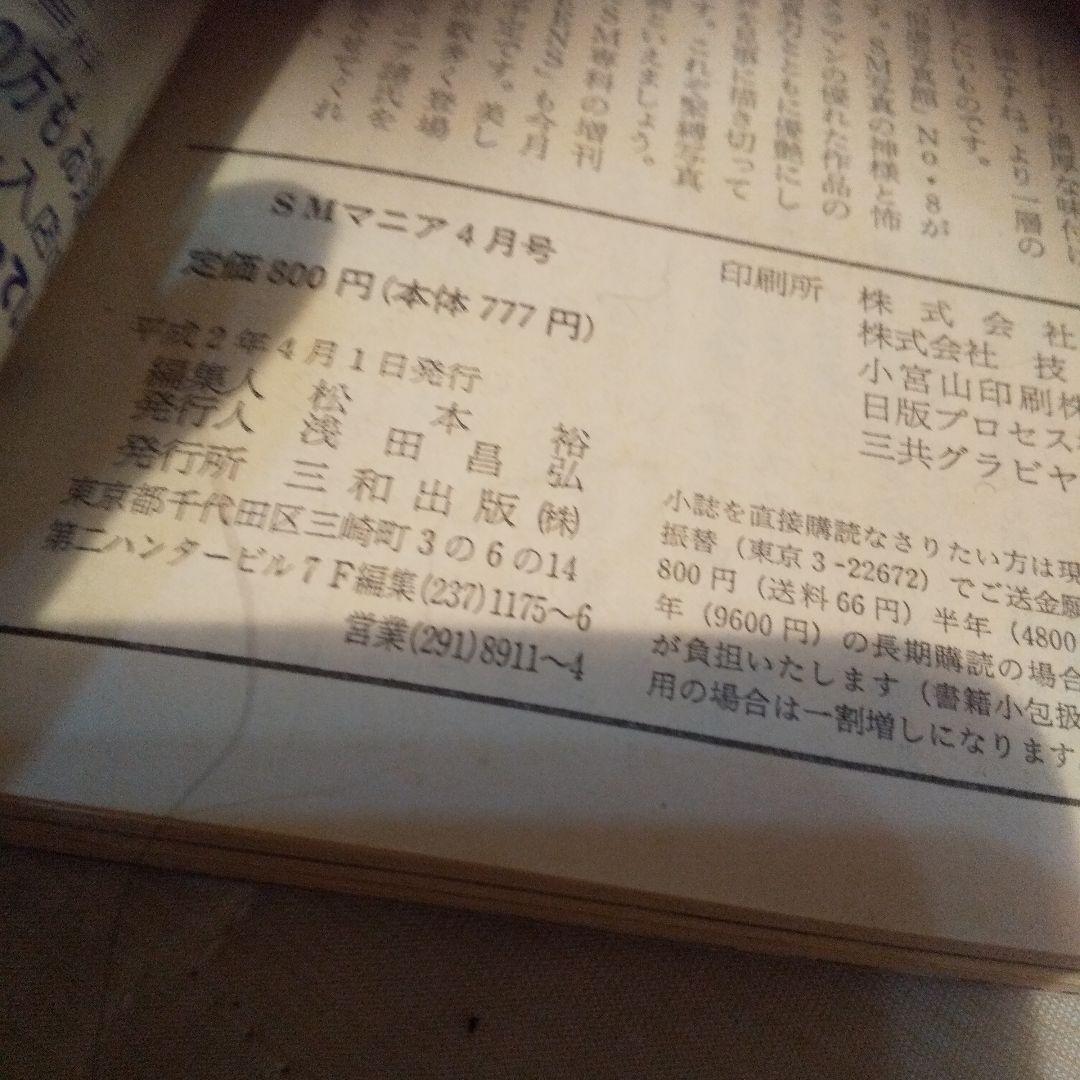 により濃厚な味付い
ますね。より一層の
にいものです。
写真館」No・8が
。SM写真の神様と怖
マンの優れた作品の
切とともに優艶にし
を見事に描き切って
。これぞ緊縛写真
といえましょう。
SM専科の増刊
も今月
です。美し
続々登場
氏を
てくれ
SMマニア4月号
定価800円(本体777円)
平成2年4月1日発行
編集人 松本裕
発行人 浅田昌弘
発行所 三和出版㈱
東京都千代田区三崎町3の6の14
第二ハンタービル7F編集(237)1175〜6
営業(291)8911〜4
印刷所 株式会社
株式会社 技
小宮山印刷株
日版プロセス
三共グラビヤ
小誌を直接購読なさりたい方は現
振替(東京3-22672)でご送金願
800円(送料66円)半年(4800
年(9600円)の長期購読の場合
が負担いたします(書籍小包扱
用の場合は一割増しになります